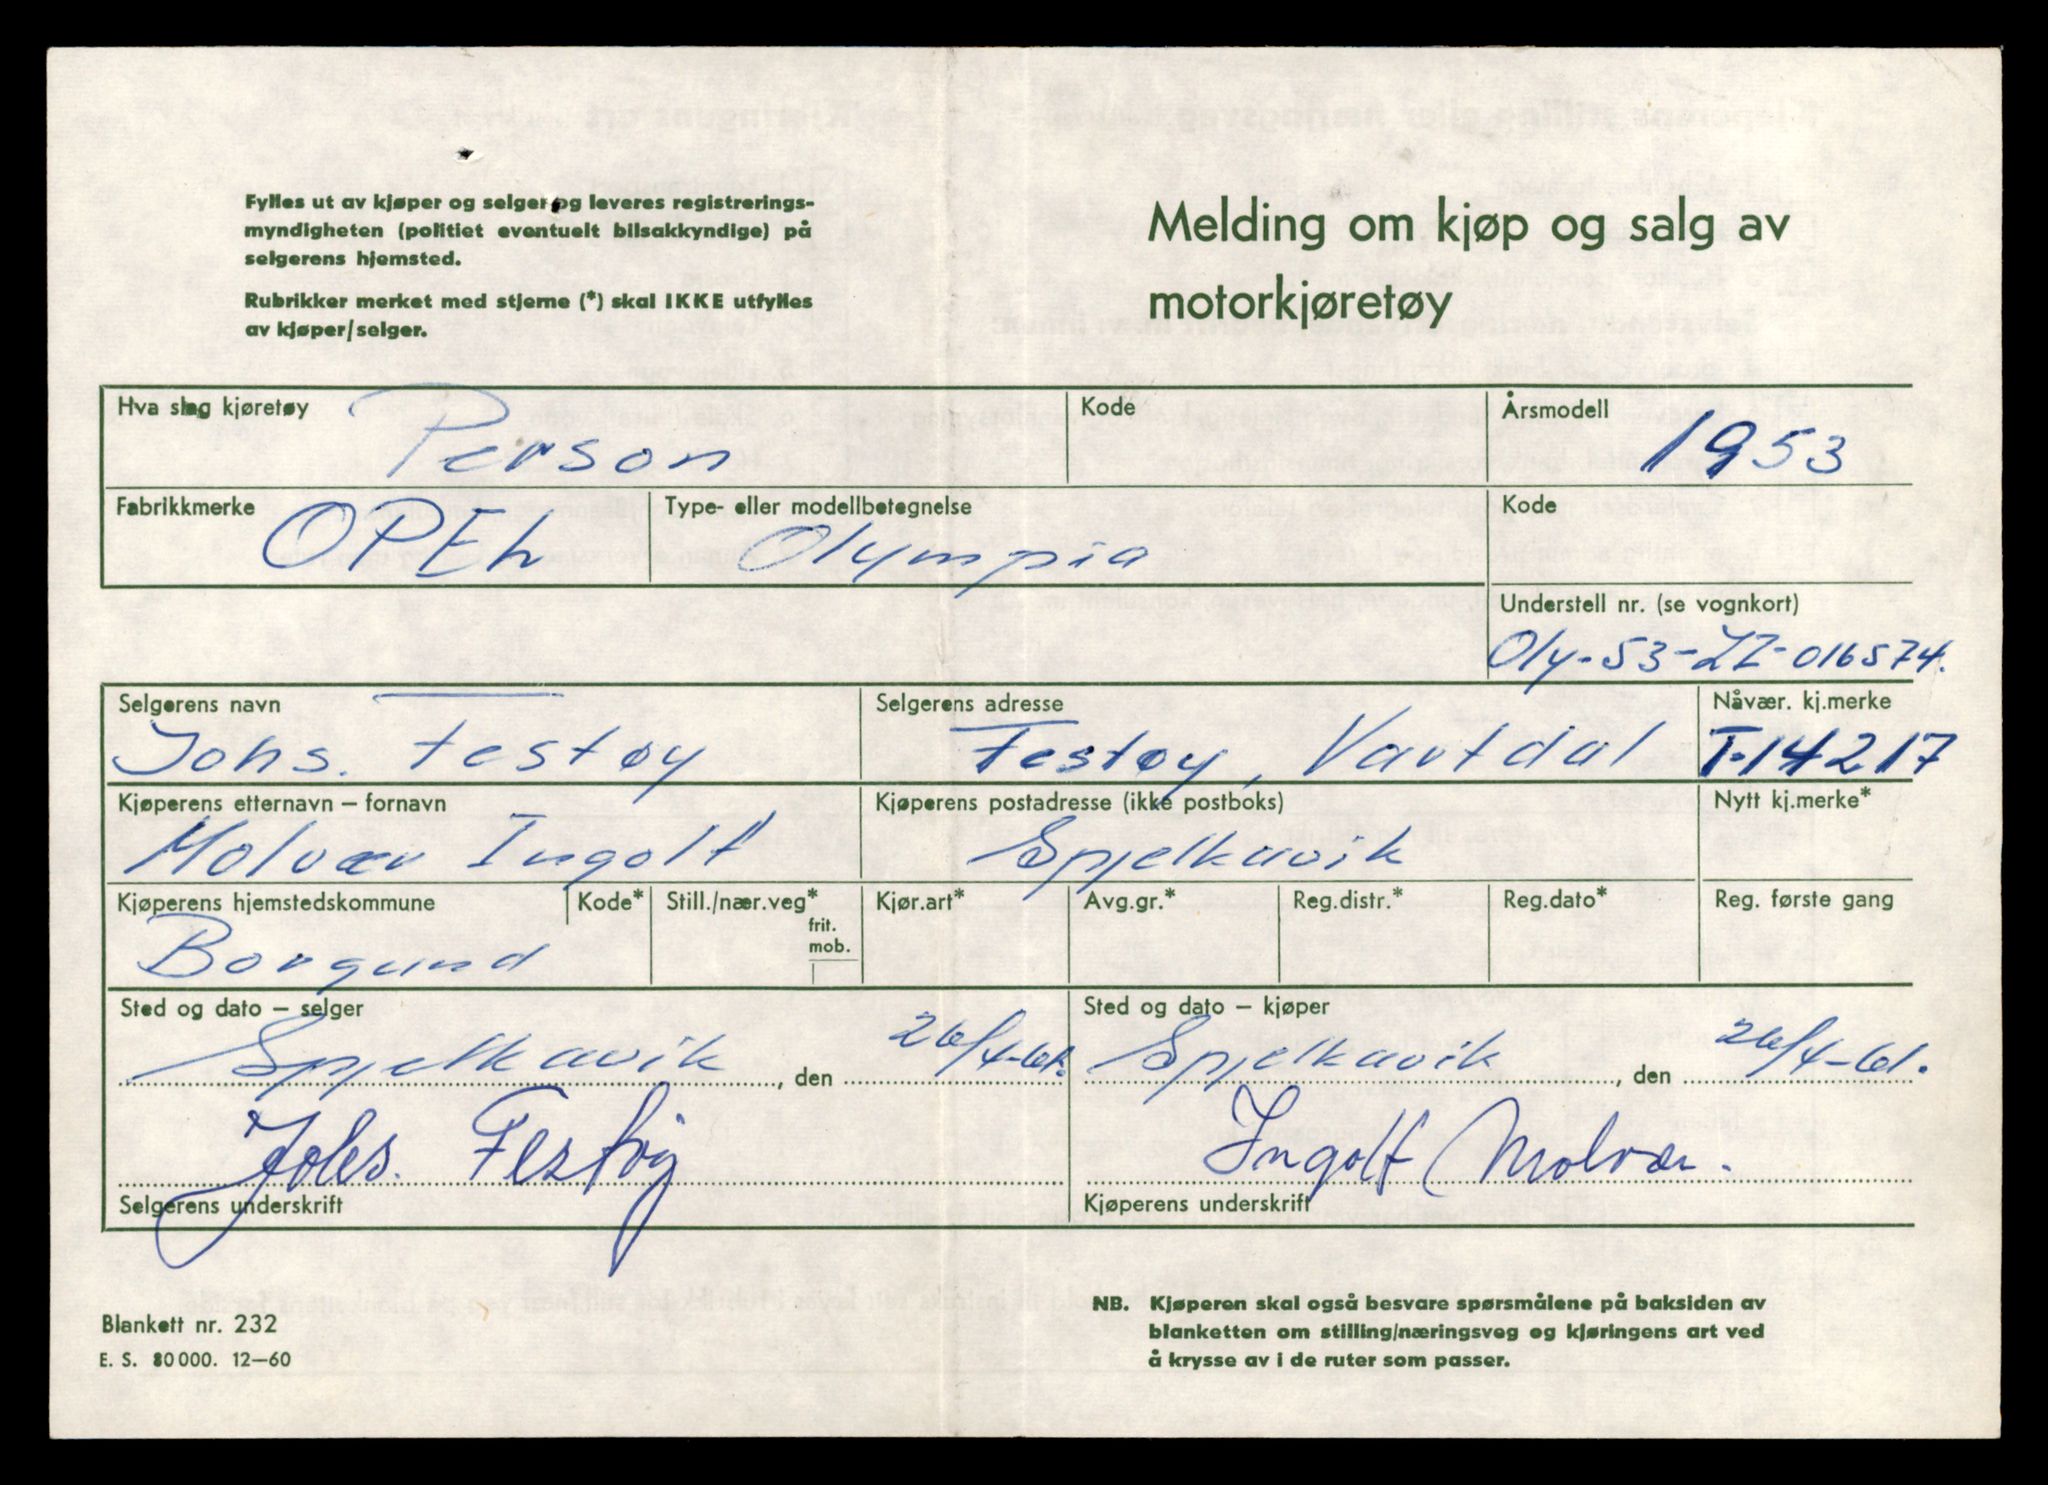 Fylles ut av kjøper og selger og leveres registrerings-
myndigheten (politiet eventuelt bilsakkyndige) på
selgerens hjemsted.
Rubrikker merket med stjerne (*) skal IKKE utfylles
av kjøper/selger.
Melding om kjøp og salg av
motorkjøretøy
Hva slag kjøretøy Person
Kode
Årsmodell 1953
Fabrikkmerke OPEL
Type- eller modellbetegnelse Olympia
Kode
Understell nr. (se vognkort)
Oly-53-ZZ-016574.
Selgerens navn
Johs. Festøy
Selgerens adresse
Festøy, Vartdal
Nåvær. kj.merke
T-14217
Kjøperens etternavn – fornavn
Molvær Ingolf
Kjøperens postadresse (ikke postboks)
Spjelkavik
Nytt kj.merke*
Kjøperens hjemstedskommune
Borgund
Kode*
Still./nær.veg*
frit.
mob.
Kjør.art*
Avg.gr.*
Reg.distr.*
Reg.dato*
Reg. første gang
Sted og dato – selger
Spjelkavik, den 26/4-61.
Johs. Festøy
Selgerens underskrift
Sted og dato – kjøper
Spjelkavik, den 26/4-61.
Ingolf Molvær.
Kjøperens underskrift
Blankett nr. 232
E. S. 80000. 12–60
NB. Kjøperen skal også besvare spørsmålene på baksiden av
blanketten om stilling/næringsveg og kjøringens art ved
å krysse av i de ruter som passer.